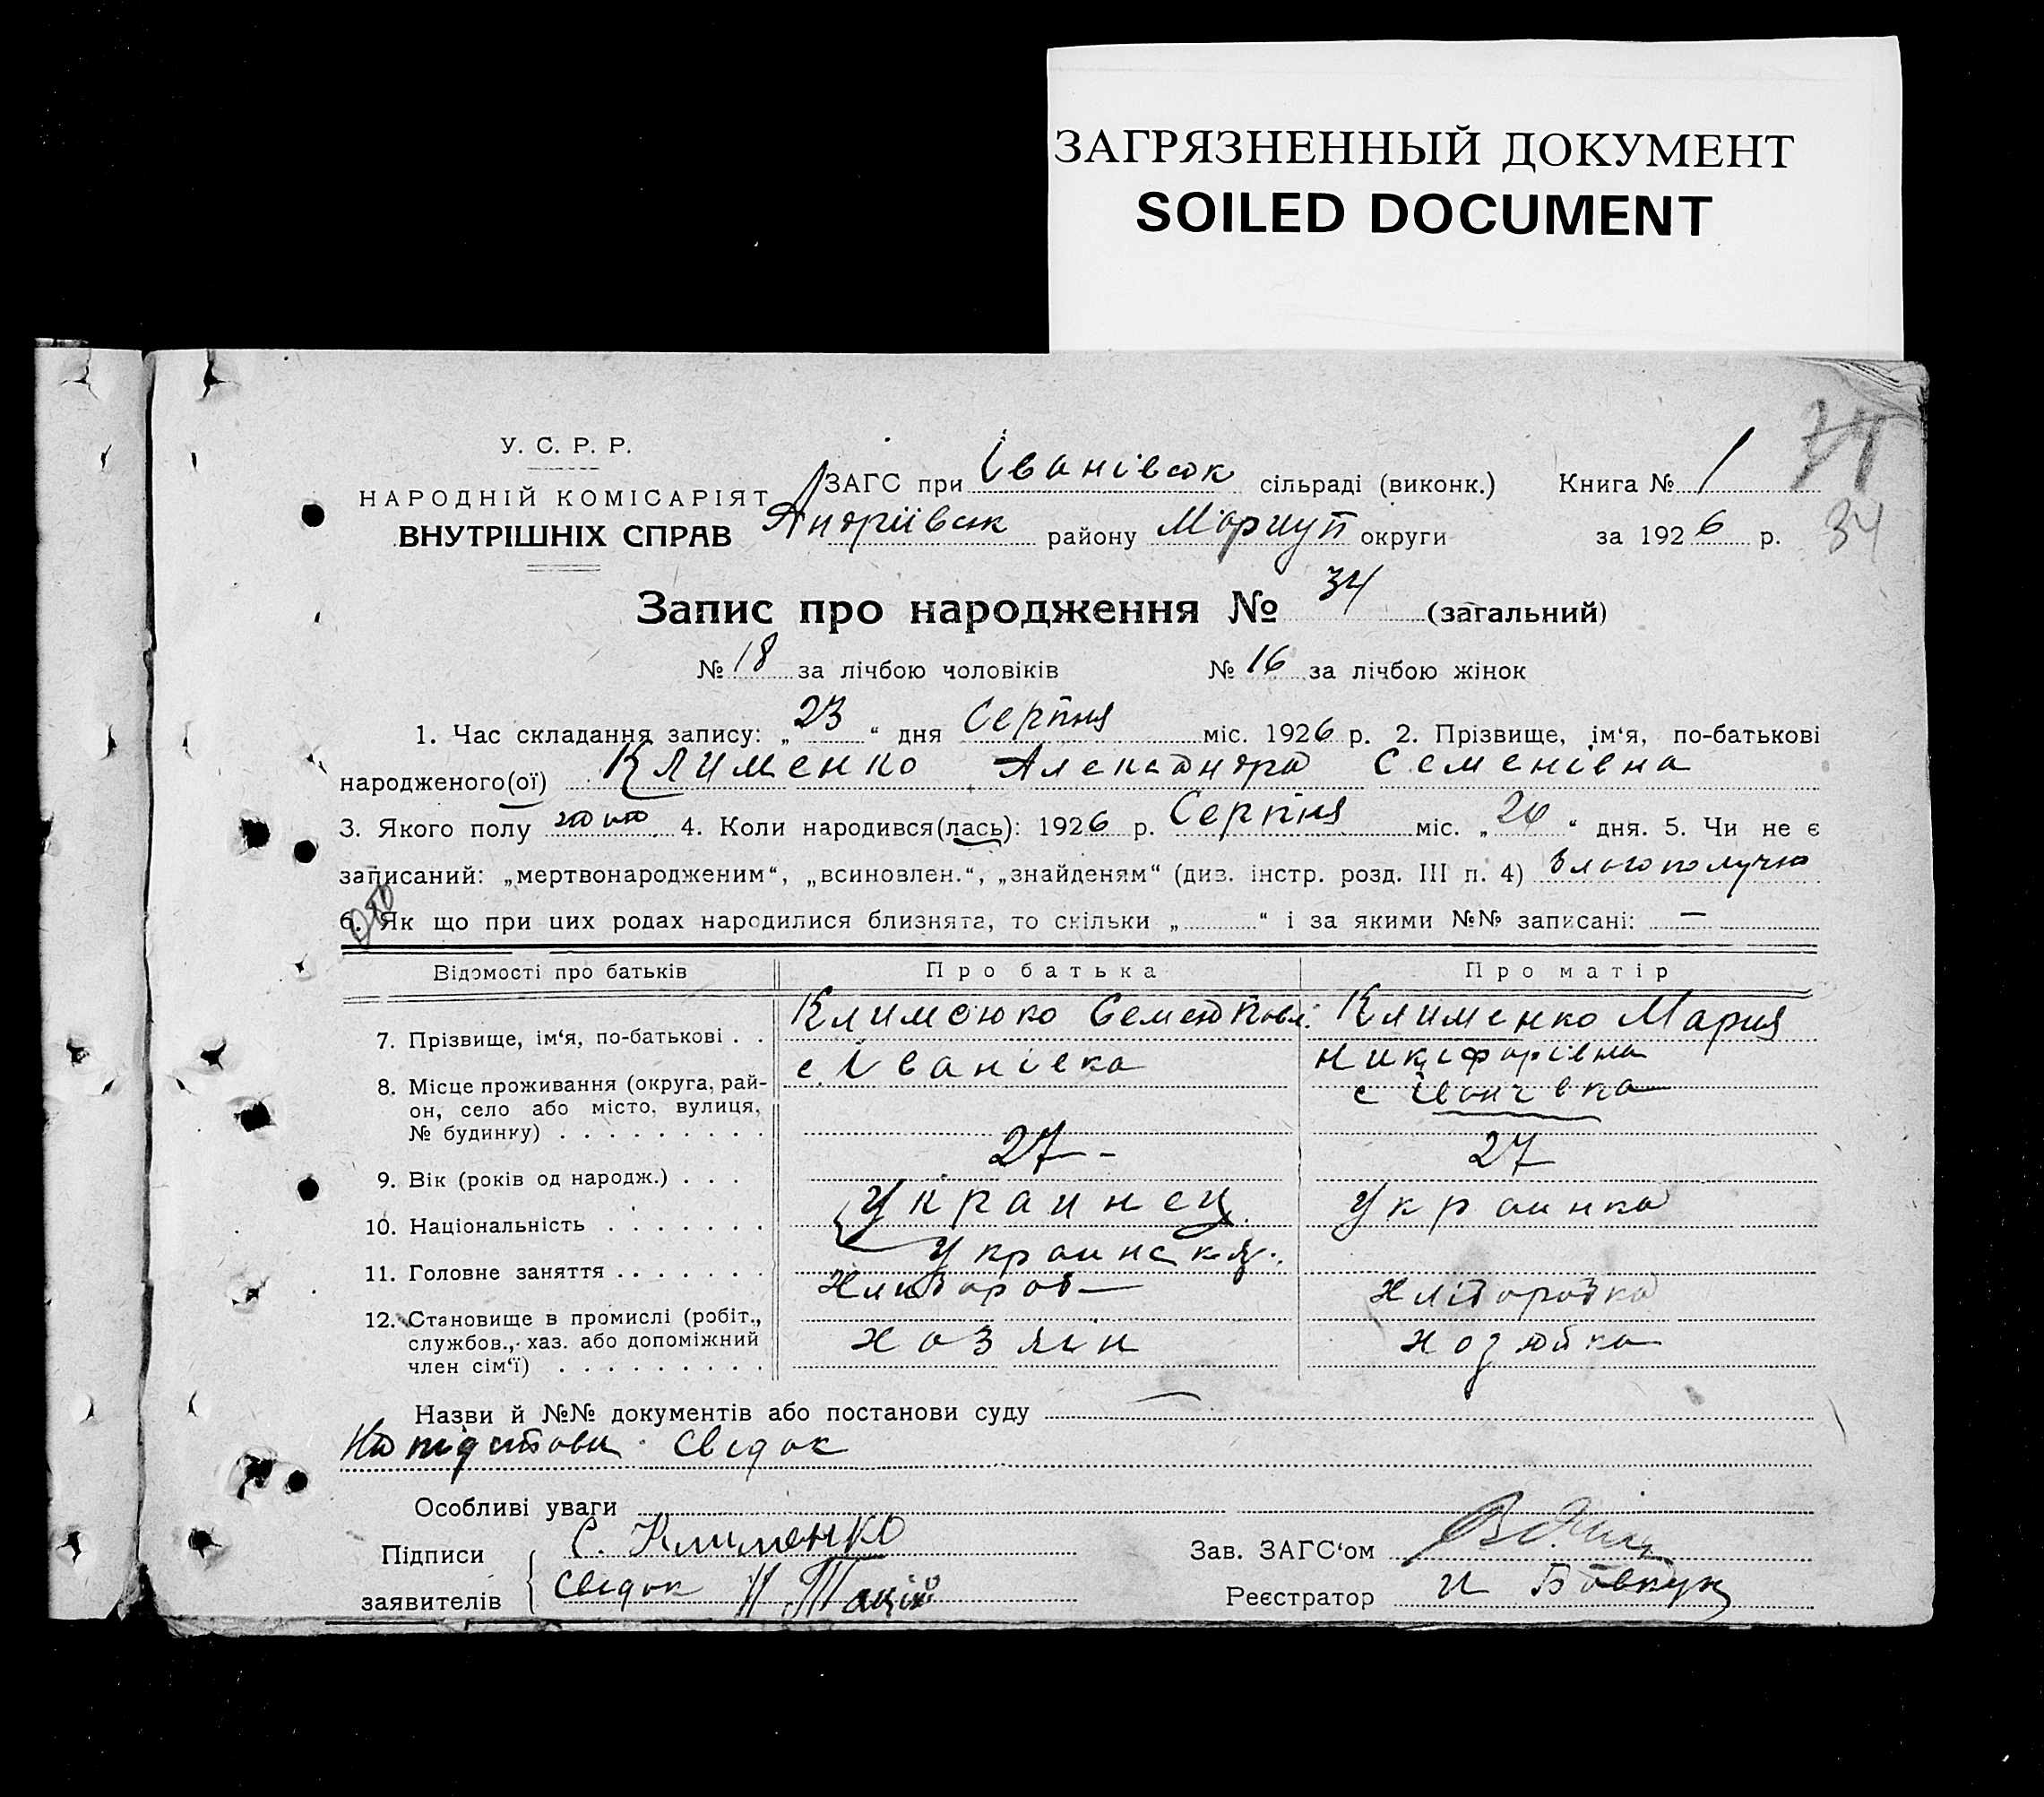 ЗАГРЯЗНЕННЫЙ ДОКУМЕНТ
SOILED DOCUMENT
У. С. Р. Р.
НАРОДНІЙ КОМІСАРІЯТ
ВНУТРІШНІХ СПРАВ
ЗАГС при Іванівськ сільраді (виконк.) Книга № 1
Андріївськ району Мариуп округи за 1926 р.
34
Запис про народження № 34 (загальний)
№ 18 за лічбою чоловіків № 16 за лічбою жінок
1. Час складання запису: „23“ дня Серпня міс. 1926 р. 2. Прізвище, ім‘я, по-батькові
народженого(ої) Клименко Александра Семенівна
3. Якого полу 4. Коли народився(лась): 1926 р. Серпня міс. „20“ дня. 5. Чи не є
записаний: „мертвонародженим“, „всиновлен.“, „знайденям“ (див. інстр. розд. III п. 4) благополучно
6. Як що при цих родах народилися близнята, то скільки „ “ і за якими №№ записані: —
Відомості про батьків Про батька Про матір
7. Прізвище, ім‘я, по-батькові . . Клименко Семен Павл. Клименко Мария
Никіфорівна
8. Місце проживання (округа, рай-
он, село або місто, вулиця,
№ будинку) . . . . . . . . . с. Іванівка с Іванівка
9. Вік (років од народж.) . . . 27 - 27
10. Національність . . . . . . . Украинец Украинка
Украинскя.
11. Головне заняття . . . . . . . Хлибороб Хліборобка
12. Становище в промислі (робіт.,
службов., хаз. або допоміжний
член сім‘ї) . . . . . . . . . хозяин хозяйка
Назви й №№ документів або постанови суду —
На підстави свідок
Особливі уваги
Підписи С. Клименко Зав. ЗАГС‘ом
заявителів свідок Реєстратор